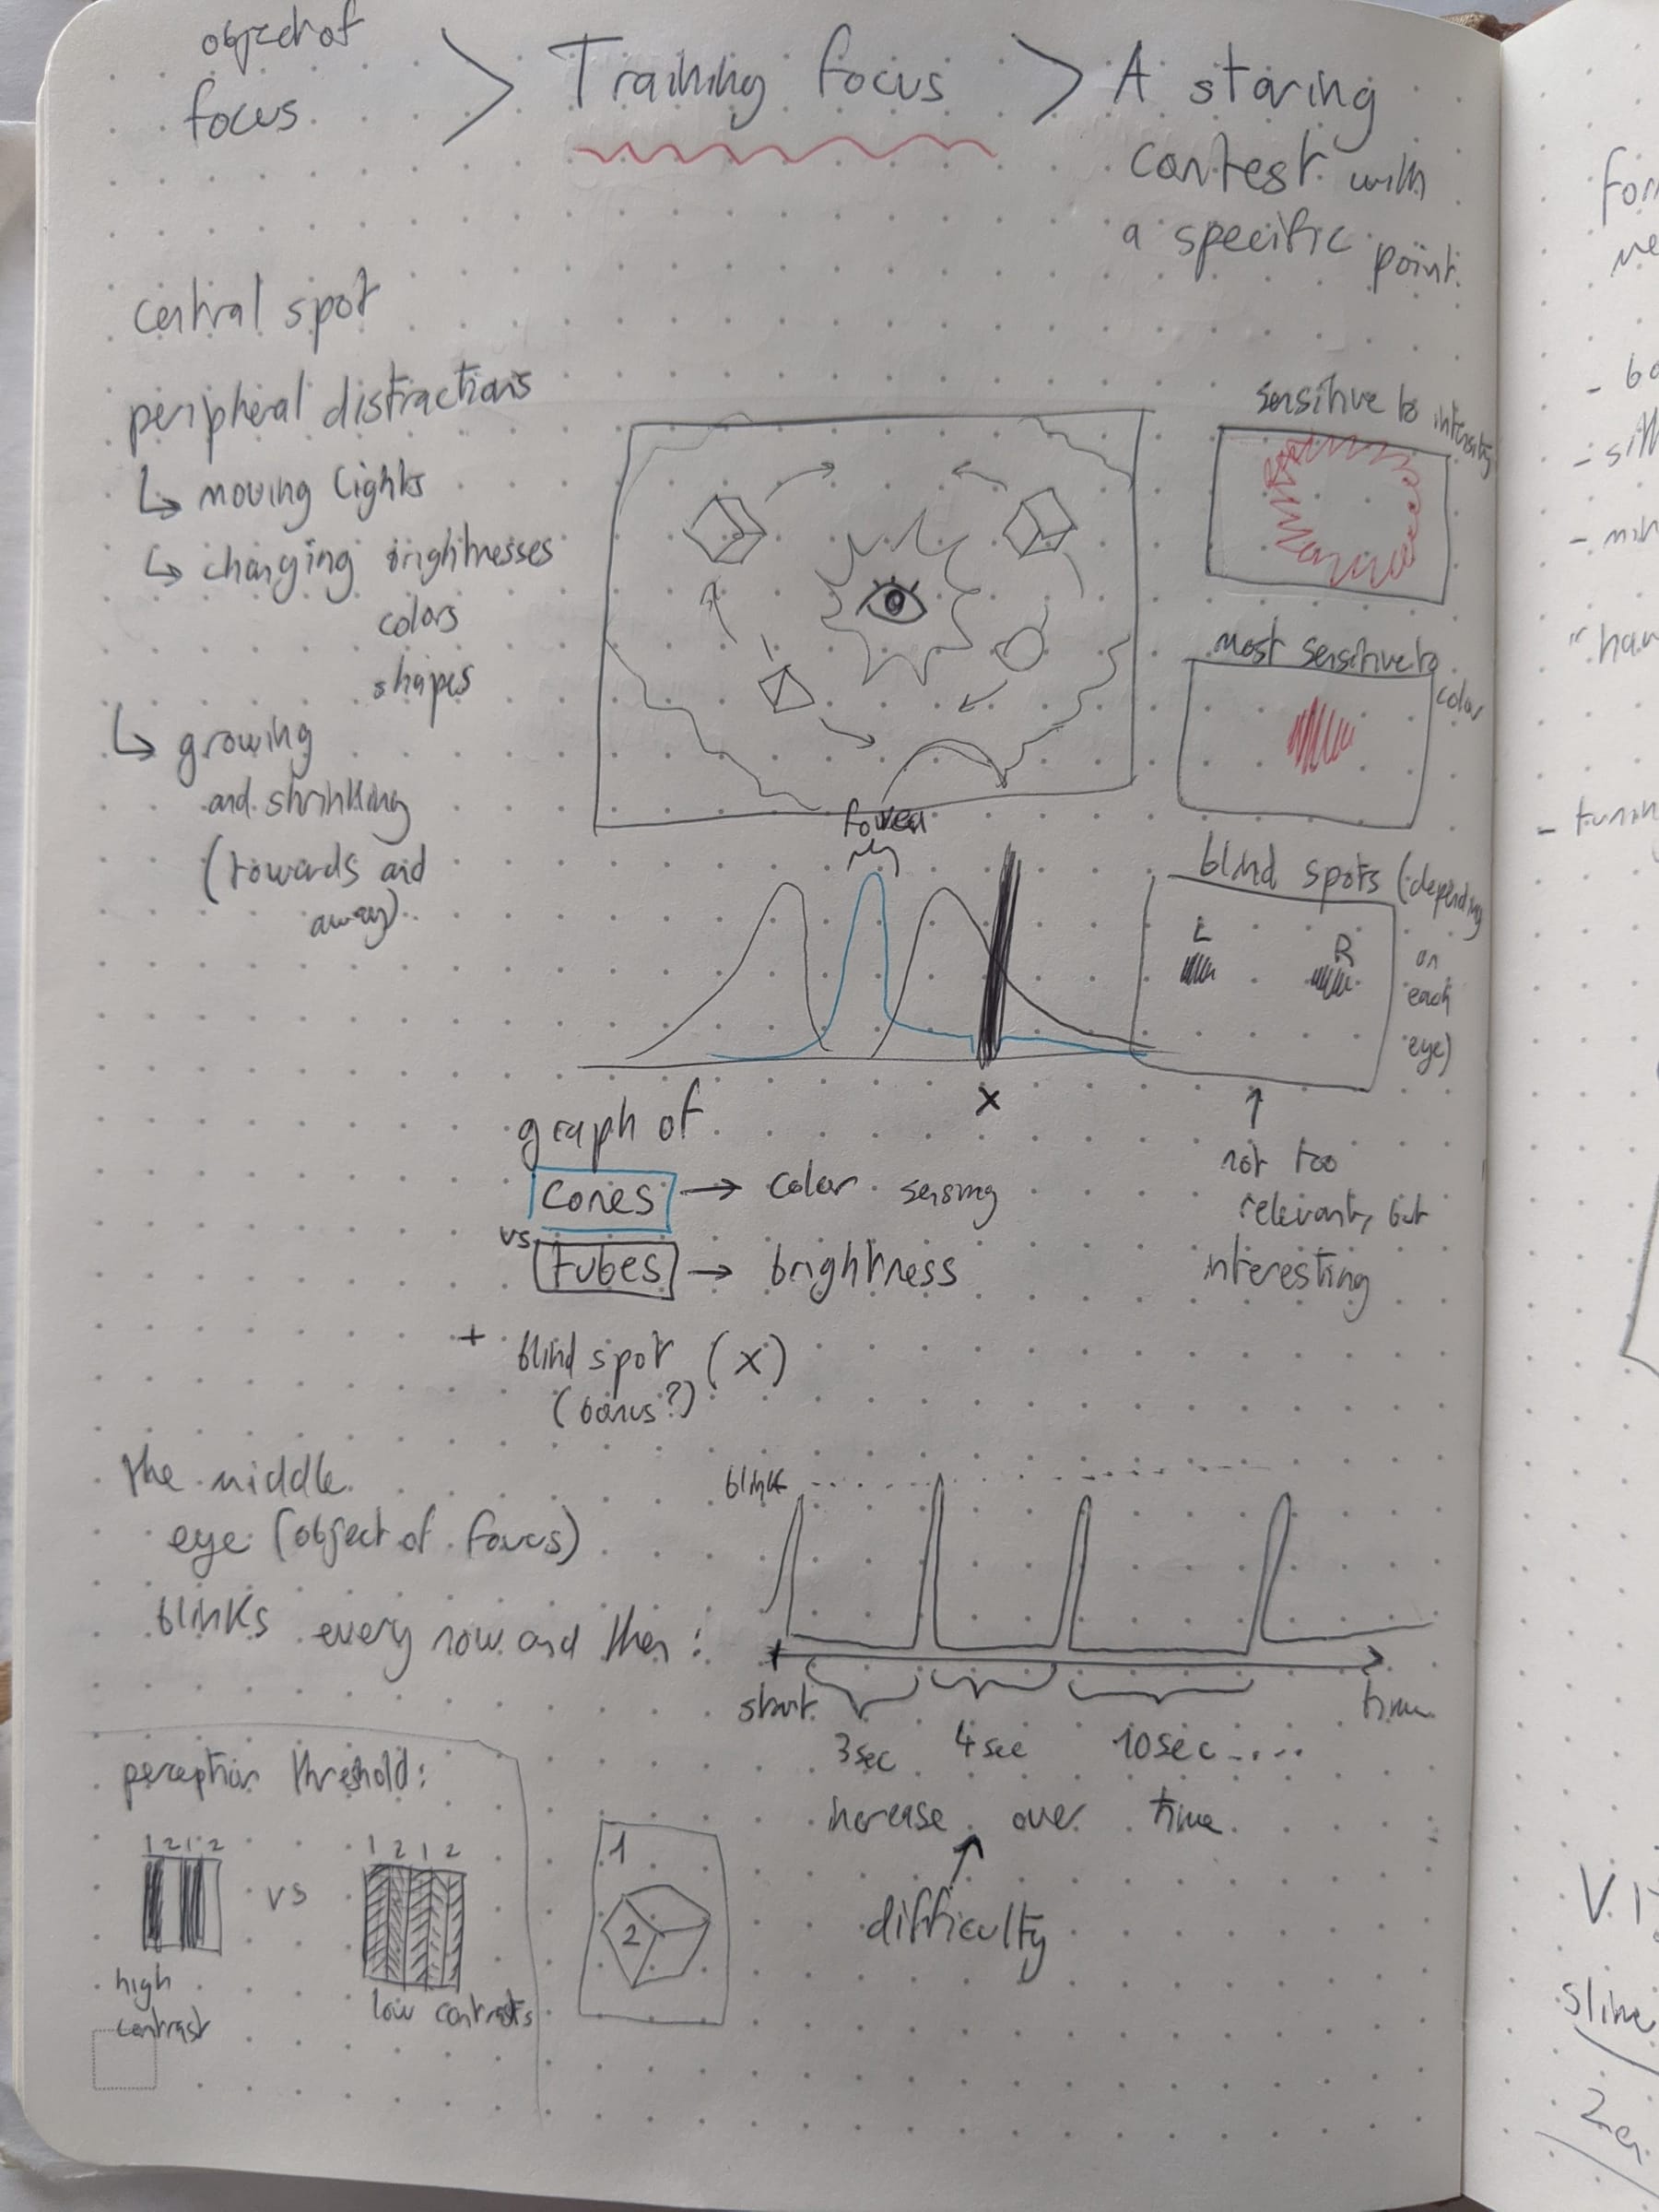 object of
focus
>
Training focus
>
A staring
contest with
a specific point.
central spot
peripheral distractions
↳ moving lights
↳ changing brightnesses
colors
shapes
↳ growing
and shrinking
(towards and
away)
sensitive to intensity
most sensitive to
color
fovea
blind spots (depending
on
each
eye)
L
R
x
↑
not too
relevant, but
interesting
graph of
cones → color sensing
vs
tubes → brightness
+ blind spot (x)
(bonus?)
the middle
eye (object of focus)
blinks every now and then:
blink
start
time
3sec 4sec 10sec ....
increase over time
difficulty
perception threshold:
1 2 1 2
vs
1 2 1 2
high
contrast
low contrasts
1
2
- bo
- min
"hav